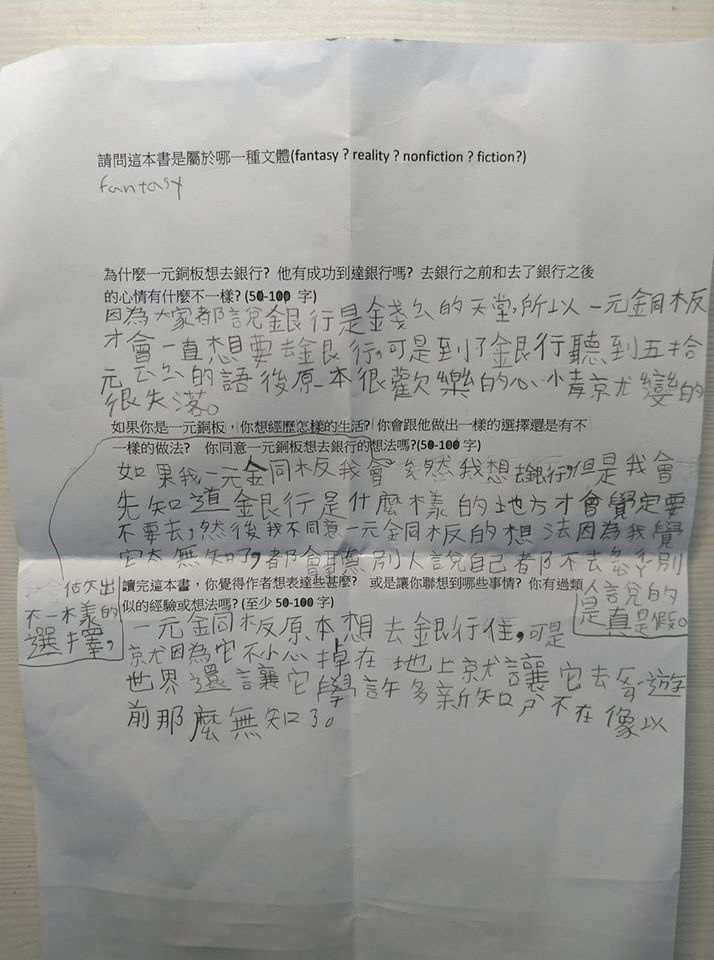 請問這本書是屬於哪一種文體(fantasy ? reality ? nonfiction ? fiction?)
fantasy
為什麼一元銅板想去銀行? 他有成功到達銀行嗎? 去銀行之前和去了銀行之後
的心情有什麼不一樣? (50-100 字)
因為大家都說銀行是金錢的天堂,所以一元銅板
才會一直想要去銀行,可是到了銀行聽到五拾
元的語後原本很歡樂的心情就變的
很失落。
如果你是一元銅板,你想經歷怎樣的生活? 你會跟他做出一樣的選擇還是有不
一樣的做法? 你同意一元銅板想去銀行的想法嗎?(50-100字)
如果我一元銅板我會
做出
不一樣的
選擇,
然我想去銀行,但是我會
先知道銀行是什麼樣的地方才會覺定要
不要去,然後我不同意一元銅板的想法因為我覺
它太無知了,都會聽別人說自己都不去分別
人說的
是真是假。
讀完這本書,你覺得作者想表達些甚麼? 或是讓你聯想到哪些事情? 你有過類
似的經驗或想法嗎? (至少 50-100 字)
一元銅板原本想去銀行住,可是
就因為它不小心掉在地上就讓它去遊
世界還讓它學許多新知,不在像以
前那麼無知了。